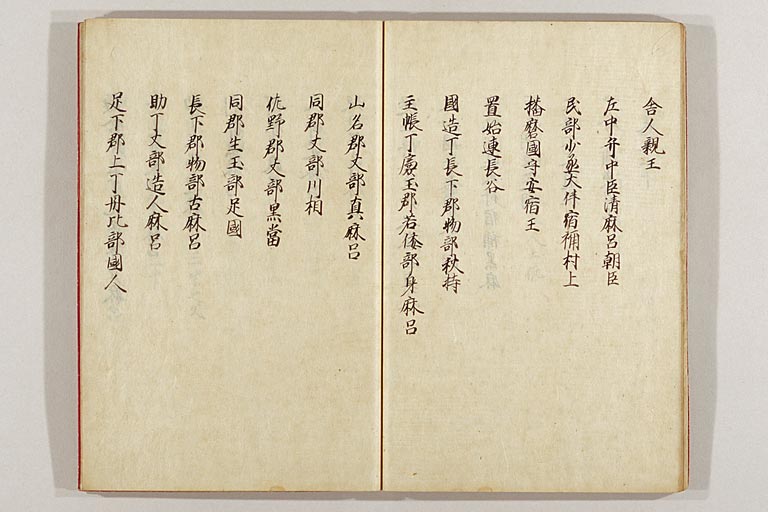 舎人親王
左中弁中臣清麻呂朝臣
民部少丞大伴宿祢村上
播磨國守安宿王
置始連長谷
國造丁長下郡物部秋持
主帳丁麁玉郡若倭部身麻呂
山名郡丈部真麻呂
同郡丈部川相
佐野郡丈部黒當
同郡生玉部足國
長下郡物部古麻呂
助丁丈部造人麻呂
足下郡上丁丹比部國人